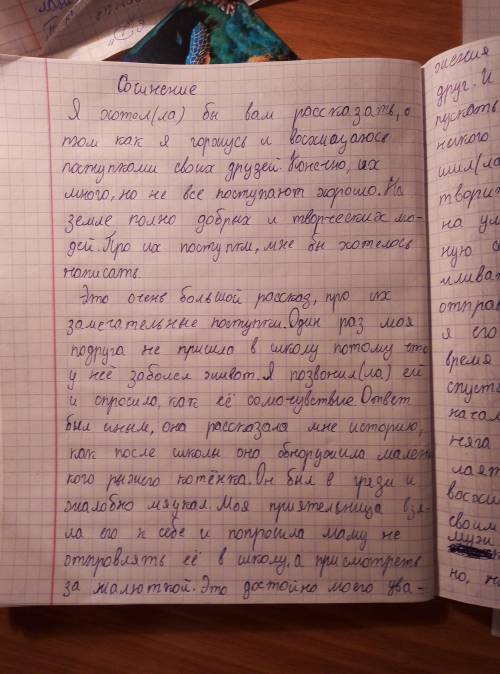 Сочинение
Я хотел(ла) бы вам рассказать, о
том как я горжусь и восхищаюсь
поступками своих друзей. Конечно, их
много, но не все поступают хорошо. На
земле полно добрых и творческих лю-
дей. Про их поступки, мне бы хотелось
написать.
Это очень большой рассказ, про их
замечательные поступки. Один раз моя
подруга не пришла в школу потому что
у неё заболел живот. Я позвонил(ла) ей
и спросила, как её самочувствие. Ответ
был иным, она рассказала мне историю,
как после школы она обноружила мален
кого рыжего котёнка. Он был в грязи и
жалобно мяукал. Моя приятельница взя-
ла его к себе и попросила маму не
отправлять её в школу, а присмотреть
за малюткой. Это достойно моего ува-
жения
друг. И
пускать
некого
шил(ла
твори
на ул
ную с
пливат
отправ
я его
время
спуст
начал
няга
лает
восхи
своим
музи
но, н